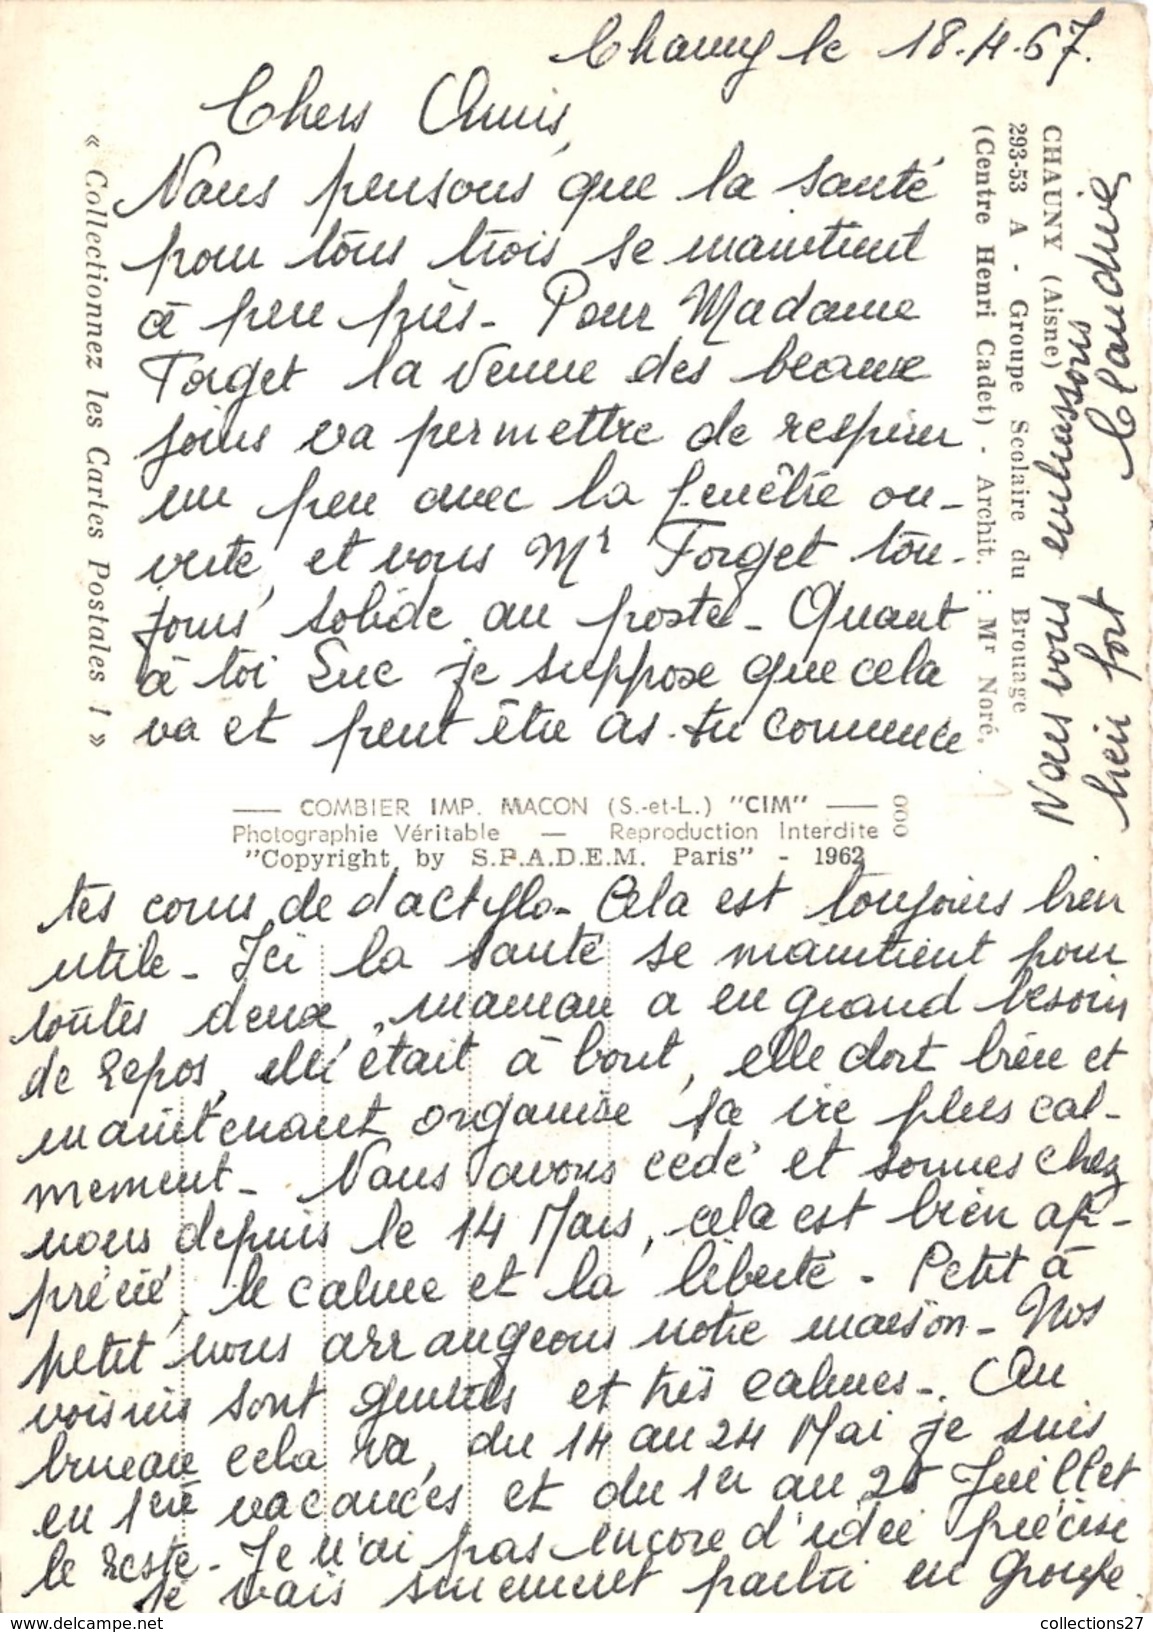 Chauny le 18.4.67.
Chers Amis,
Nous pensons que la santé
pour tous trois se maintient
à peu près - Pour Madame
Forget la venue des beaux
jours va permettre de respirer
un peu avec la fenêtre ou-
verte, et vous Mr Forget tou-
jours solide au poste - Quant
à toi Luc je suppose que cela
va et peut être as-tu commencé
tes cours de dactylo - Cela est toujours bien
utile - Ici la santé se maintient pour
toutes deux, maman a eu grand besoin
de repos, elle était à bout, elle dort bien et
maintenant organise sa vie plus cal-
mement - Nous avons cédé et sommes chez
nous depuis le 14 Mars, cela est bien ap-
précié, le calme et la liberté - Petit à
petit nous arrangeons notre maison - Nos
voisins sont gentils et très calmes - Au
bureau cela va, du 14 au 24 Mai je suis
en 1ères vacances et du 1er au 20 Juillet
le reste - Je n'ai pas encore d'idée précise
je vais sûrement partir en groupe.
Nous vous embrassons
bien fort Claudine
CHAUNY (Aisne)
293-53 A - Groupe Scolaire du Brouage
(Centre Henri Cadet) - Archit. : Mr Noré.
« Collectionnez les Cartes Postales ! »
COMBIER IMP. MACON (S.-et-L.) "CIM"
Photographie Véritable — Reproduction Interdite
"Copyright by S.P.A.D.E.M. Paris" - 1962
000
collections27